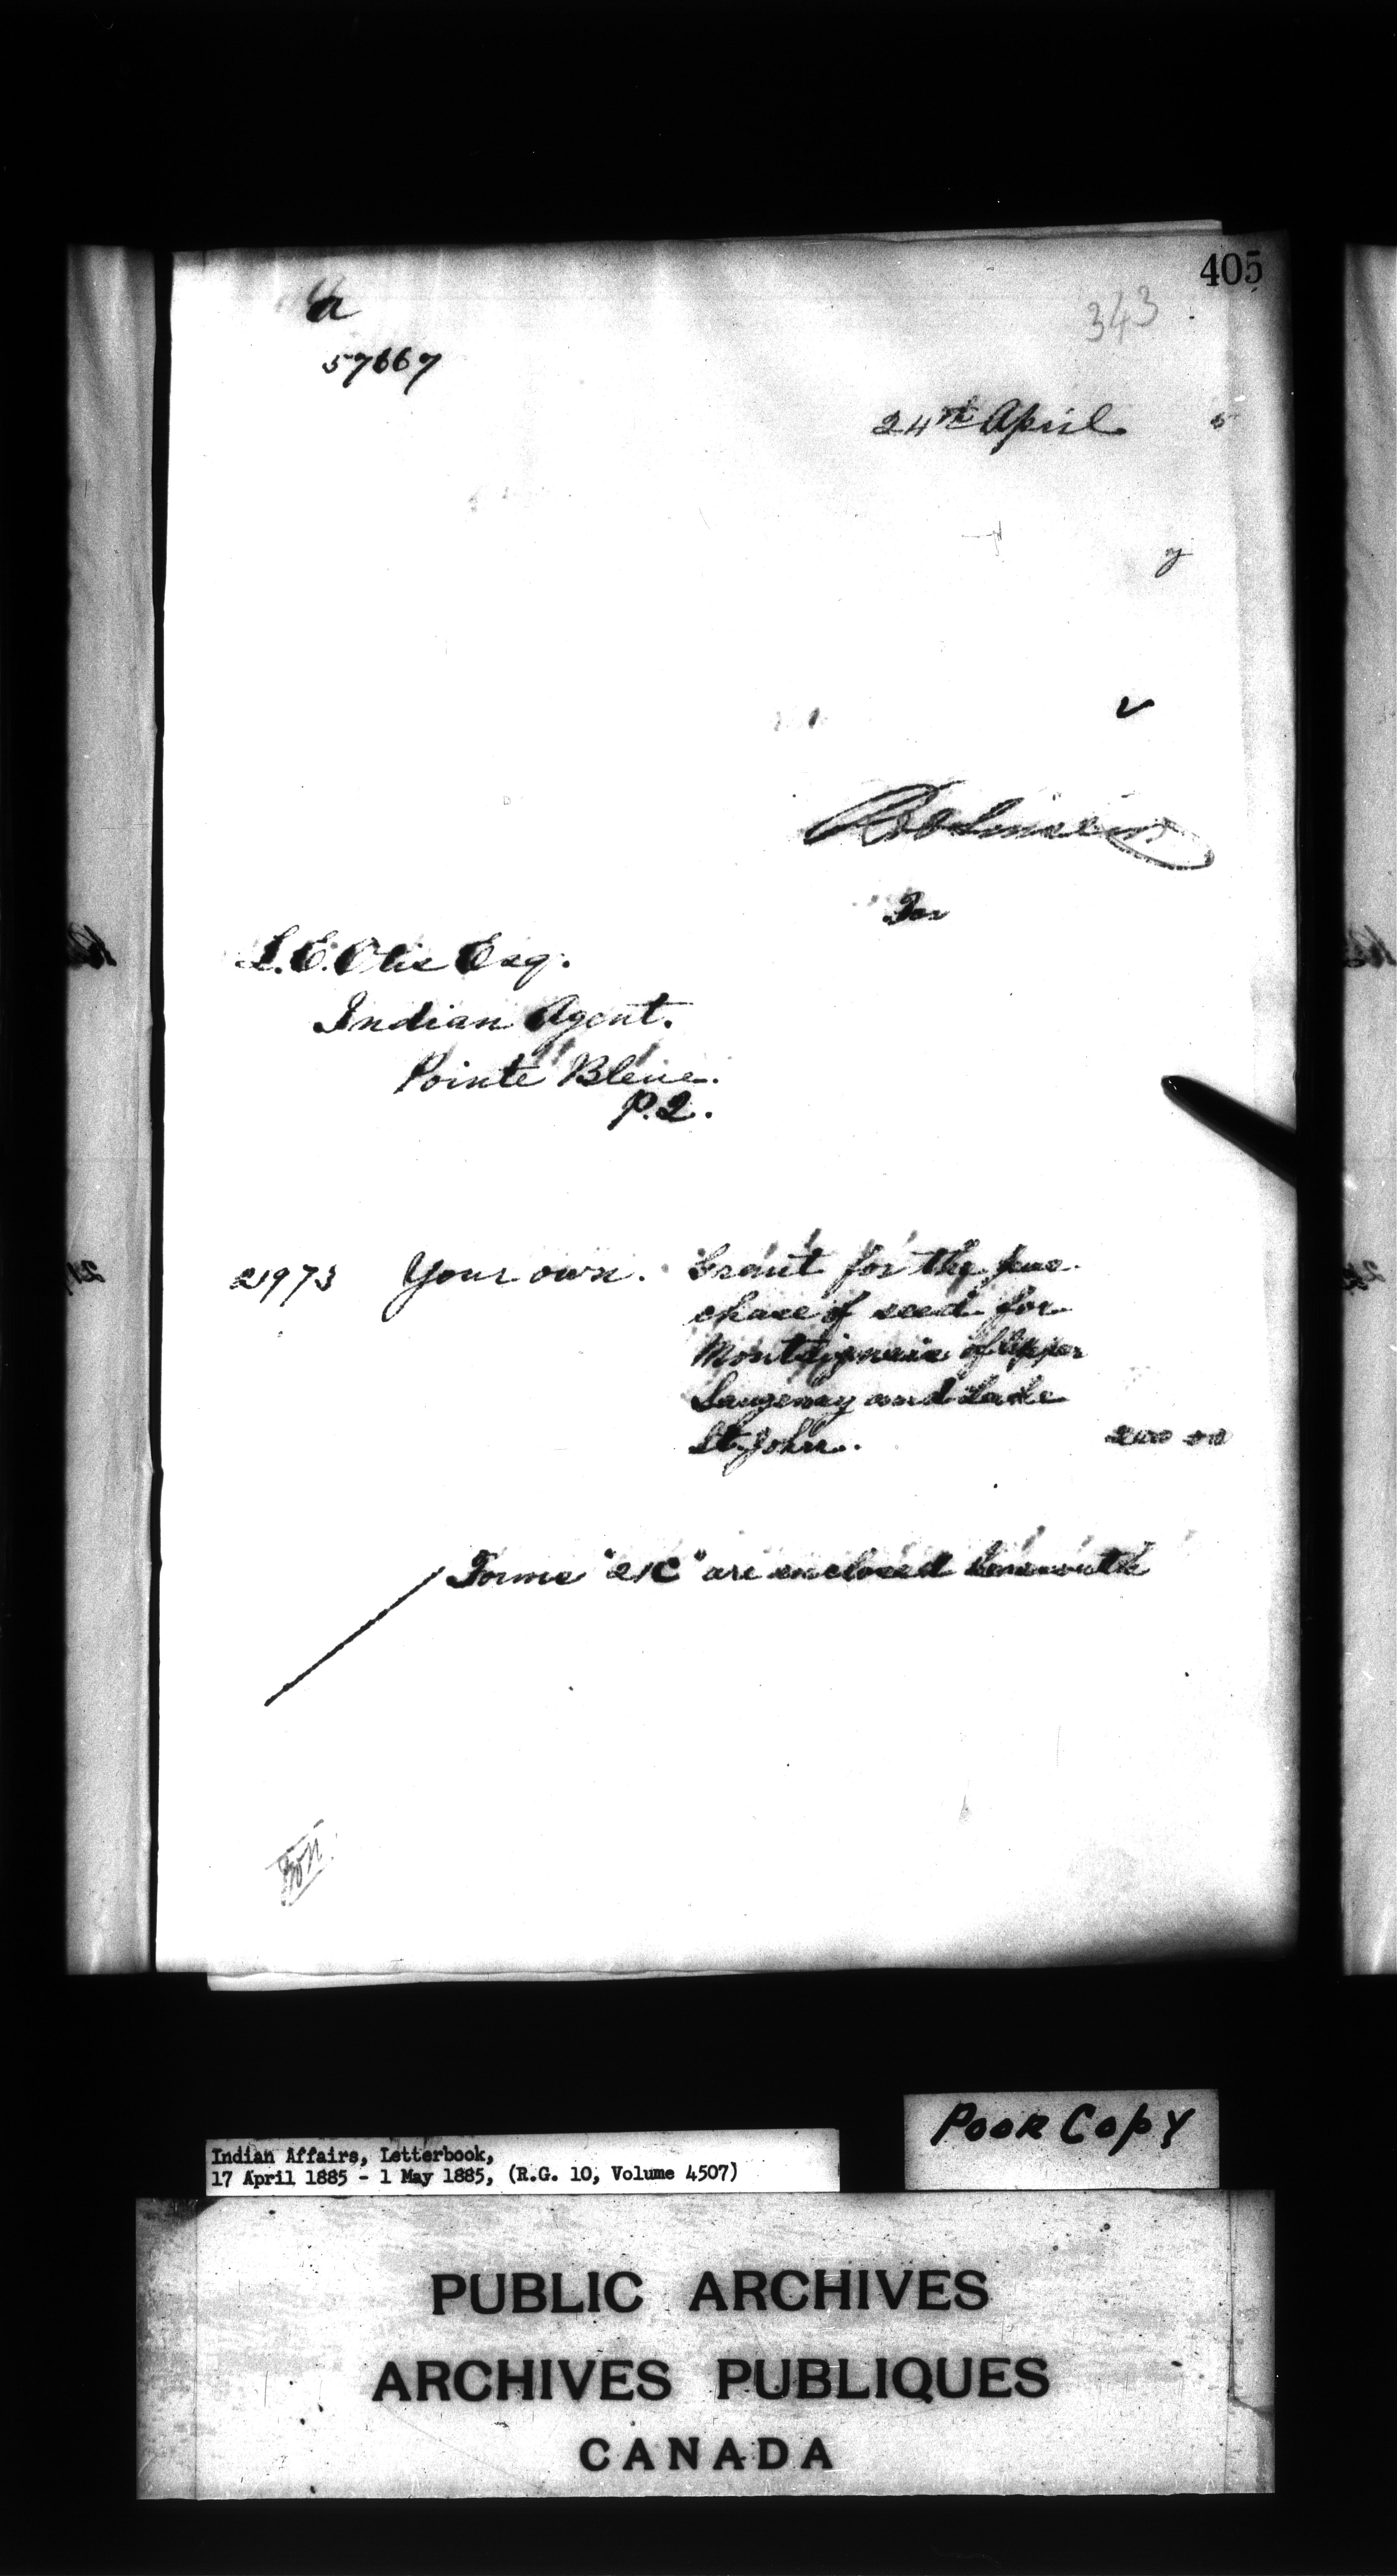 405
343
a
57667
24th April 5
y
For
L. E. Otis Esq.
Indian Agent.
Pointe Bleue.
P.Q.
21973 Your own. Grant for the pur
chase of seed for
Montagnais of Upper
Saugenay and Lake
St. John. 200 00
Forms "21C" are enclosed herewith
Poor Copy
Indian Affairs, Letterbook,
17 April 1885 - 1 May 1885, (R.G. 10, Volume 4507)
PUBLIC ARCHIVES
ARCHIVES PUBLIQUES
CANADA